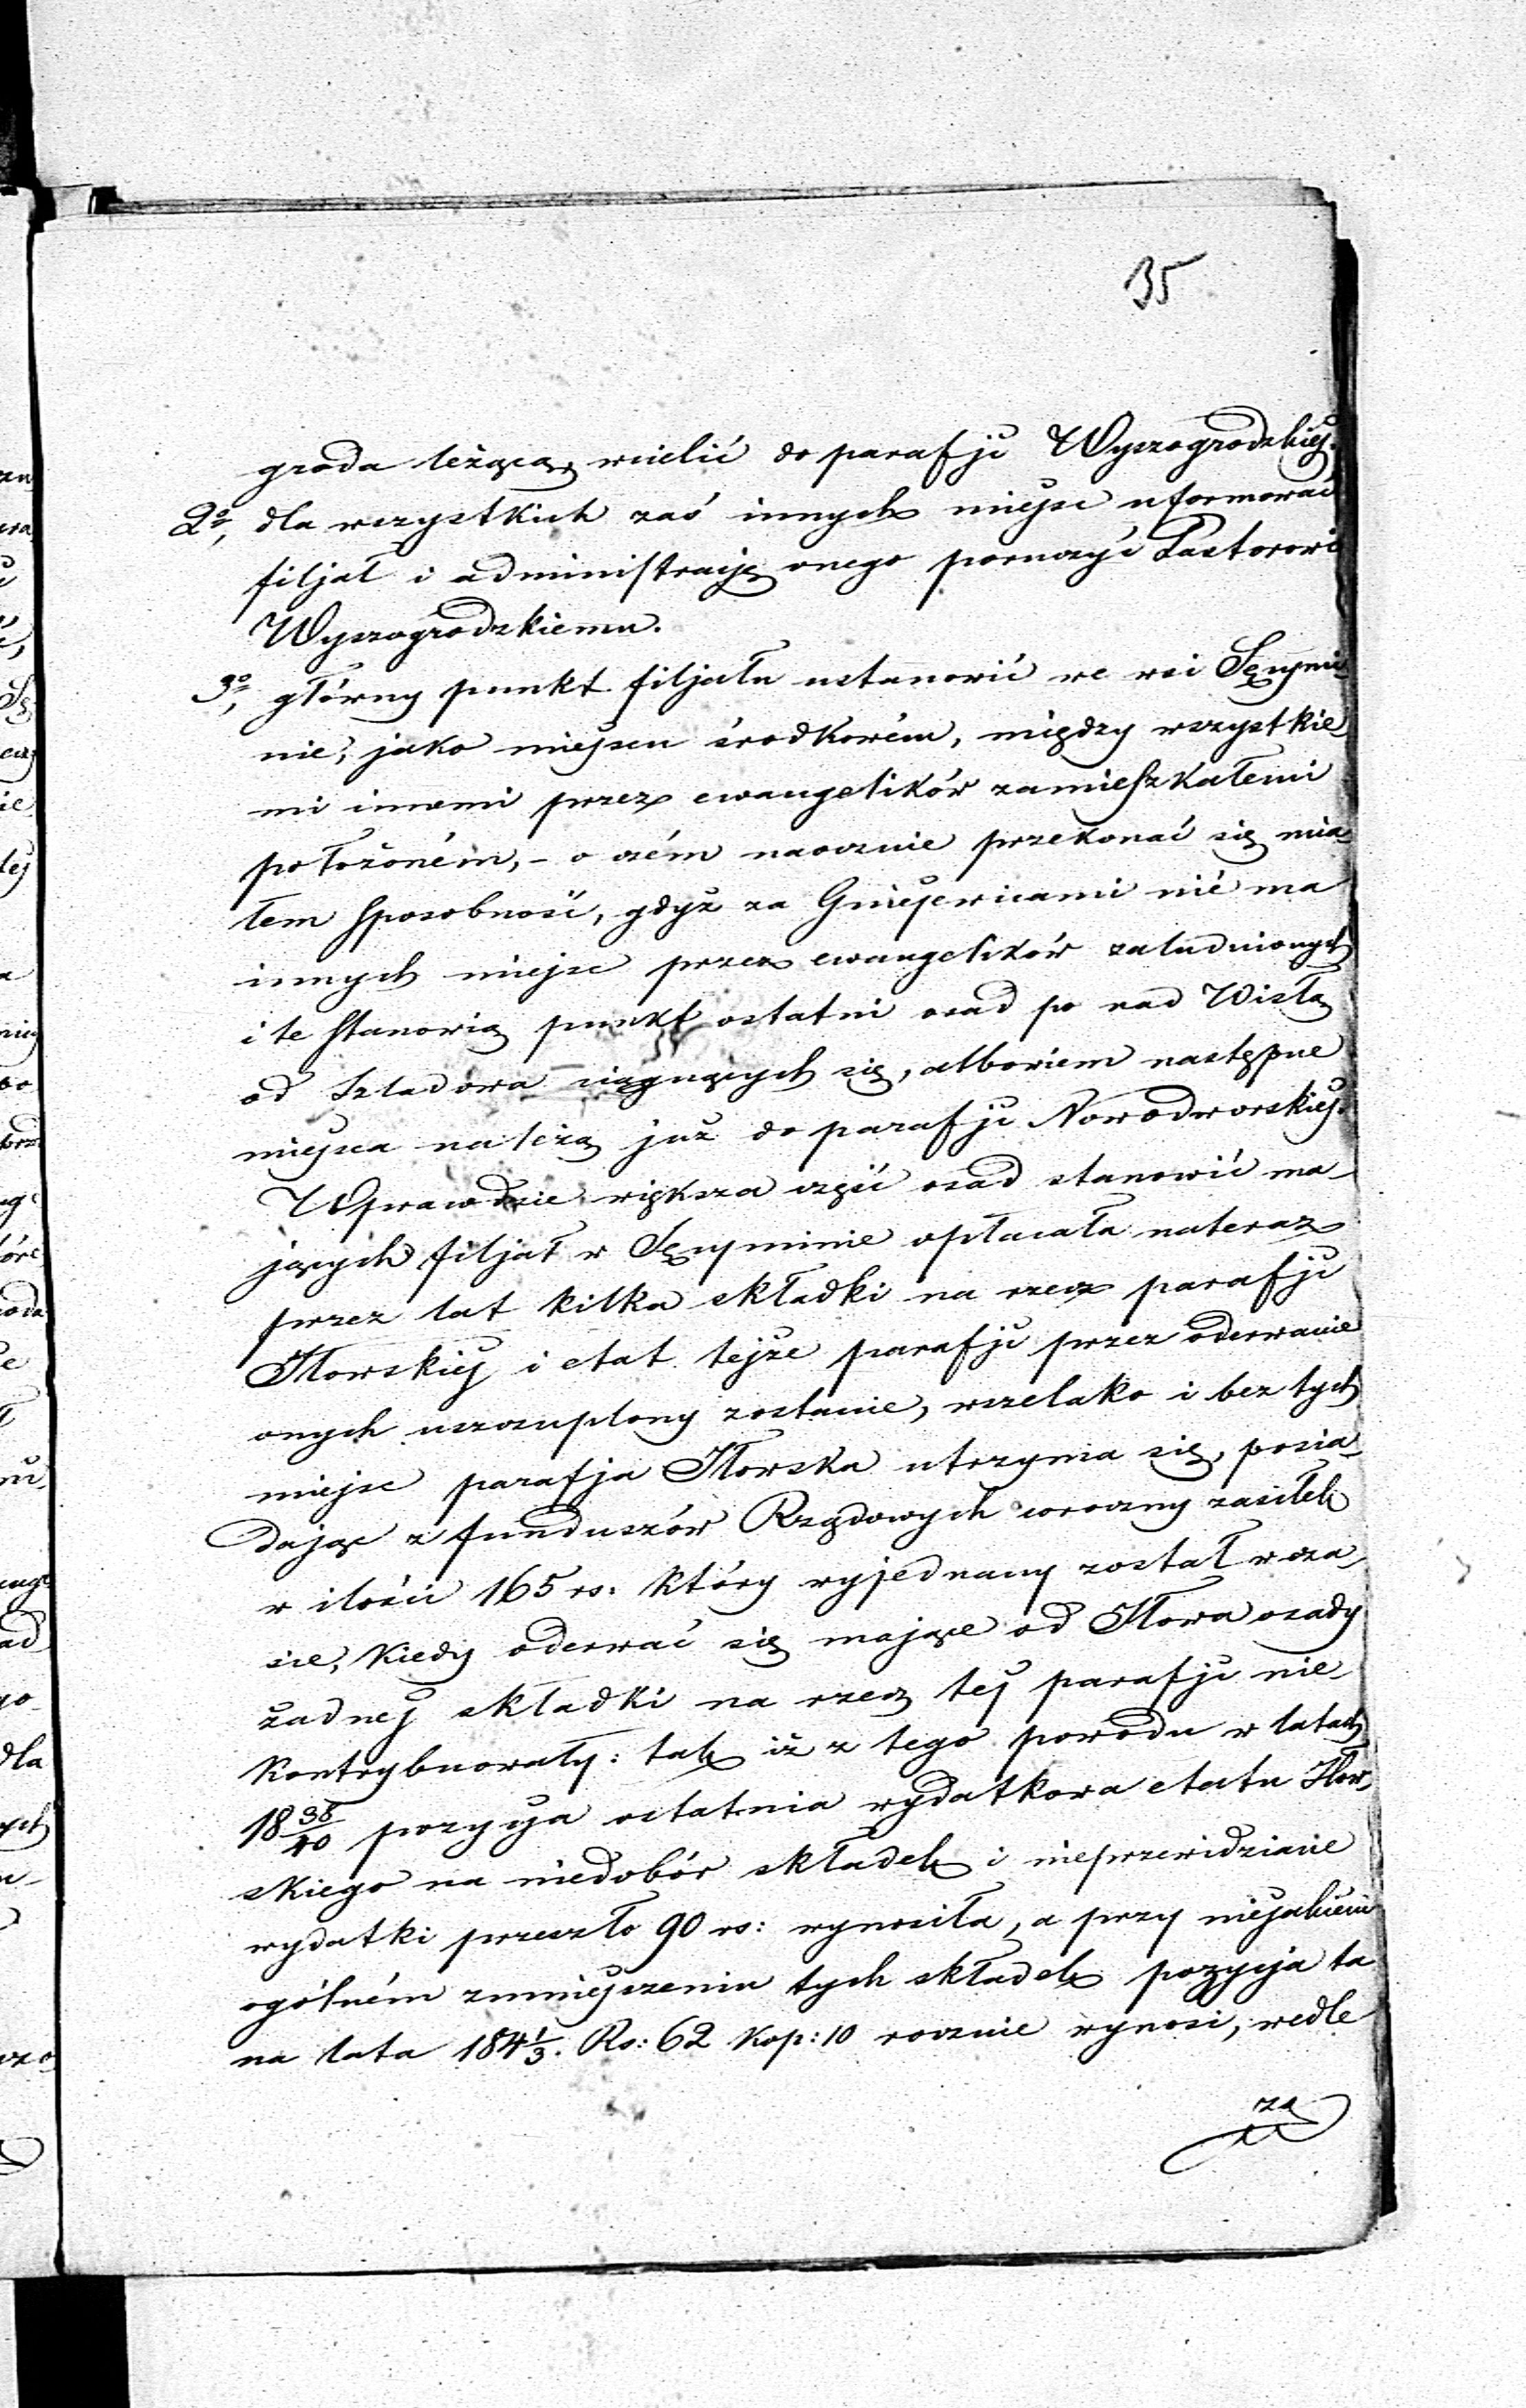 35
groda leżącą, wcielić do parafji Wyszogrodzkiej.
2o, dla wszystkich zaś innych miejsc uformować
filjał i administracją onego poruczyć Pastorowi
Wyszogrodzkiemu.
3o, główny punkt filjału ustanowić we wsi Secymi-
nie, jako miejscu środkowém, między wszystkie-
mi innemi przez ewangelików zamieszkałemi
położoném, - o czém naocznie przekonać się mia-
łem sposobność, gdyż za Gniejewicami nié ma
innych miejsc przez ewangelików zaludnionych
i te stanowią punkt ostatni osad po nad Wisłą
od Szladowa ciągnących się, albowiem następne
miejsca należą już do parafji Nowodworskiej.
Wprawdzie większa część osad stanowić ma-
jących filjał w Secyminie opłacała nateraz
przez lat kilka składki na rzecz parafji
Iłowskiej i etat tejże parafji przez oderwanie
onych uszczuplony zostanie, wszelako i bez tych
miejsc parafja Iłowska utrzyma się, posia-
dając z funduszów Rządowych coroczny zasiłek
w ilości 165 rs: który wyjednany został w cza-
sie, kiedy oderwać się mające od Iłowa osady
żadnej składki na rzecz tej parafji nie
kontrybuowały: tak iż z tego powodu w latach
18 38/40 pozycja ostatnia wydatkowa etatu Iłow-
skiego na niedobór składek i nieprzewidziane
wydatki przeszło 90 rs: wynosiła, a przy niejakiém
ogólném zmniejszeniu tych składek pozycja ta
na lata 184 1/3. Rs: 62 kop: 10 rocznie wynosi, wedle
za